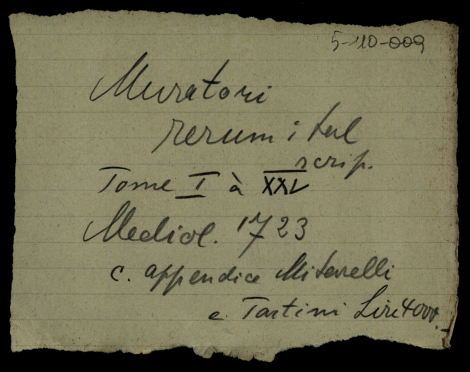 5-110-009
Muratori
rerum ital
scrip.
Tome I à XXV
Mediol. 1723
c. appendice Mitarelli
e Tartini Lire 4000.-